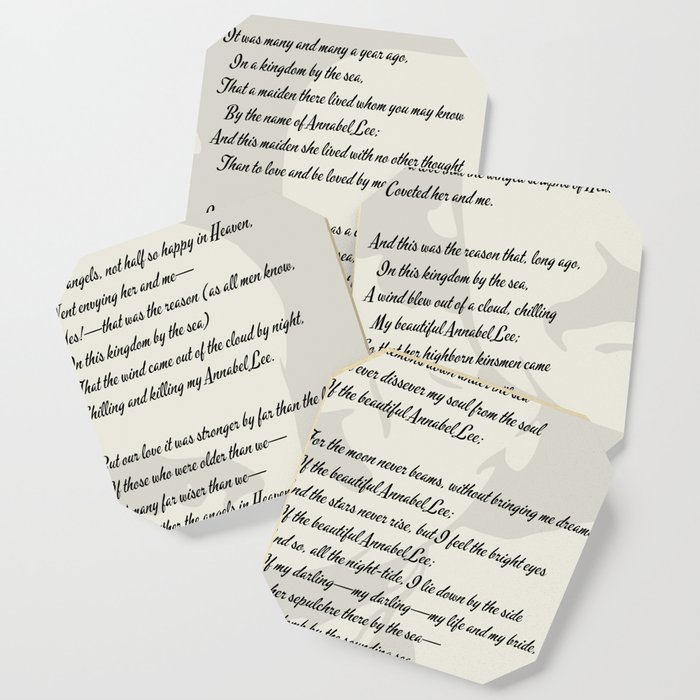 It was many and many a year ago,
In a kingdom by the sea,
That a maiden there lived whom you may know
By the name of Annabel Lee;
And this maiden she lived with no other thought
Than to love and be loved by me
Coveted her and me.
And this was the reason that, long ago,
In this kingdom by the sea,
A wind blew out of a cloud, chilling
My beautiful Annabel Lee;
So that her highborn kinsmen came
angels, not half so happy in Heaven,
Went envying her and me—
Yes!—that was the reason (as all men know,
In this kingdom by the sea)
That the wind came out of the cloud by night,
Chilling and killing my Annabel Lee.
But our love it was stronger by far than the
Of those who were older than we—
Of many far wiser than we—
the angels in Heaven
down under the sea
ever dissever my soul from the soul
Of the beautiful Annabel Lee;
For the moon never beams, without bringing me dreams
Of the beautiful Annabel Lee;
And the stars never rise, but I feel the bright eyes
Of the beautiful Annabel Lee;
And so, all the night-tide, I lie down by the side
Of my darling—my darling—my life and my bride,
her sepulchre there by the sea—
tomb by the sounding sea